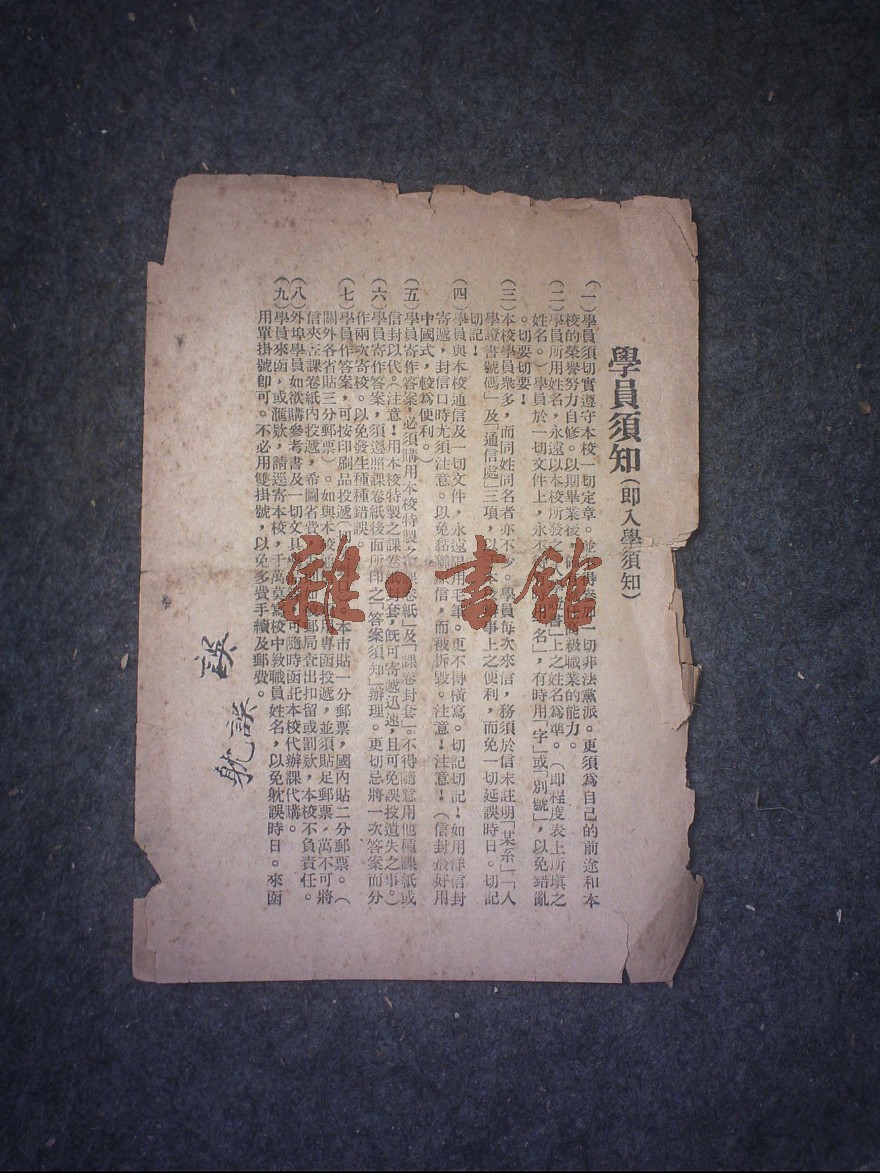 學員須知(即入學須知)
(一)學員須切實遵守本校一切定章。並不得參加一切非法黨派。更須為自己的前途和本
校的榮譽努力自修。以期畢業後,高級職業的能力。
(二)學員所用姓名,永遠以本校所發之證書」上之姓名為準。(即程度表上所填之
姓名。)學員於一切文件上,永不名」,有時用「字」或「別號」,以免錯亂
。切要切要!
(三)本校學員衆多,而同姓同名者亦不少。學員每次來信,務須於信末註明「某系」「入
學證書號碼」及「通信處」三項,以本事上之便利,而免一切延誤時日。切記
切記!
(四)學員與本校通信及一切文件,永遠用毛筆。更不得橫寫。切記切記!如用洋信封
寄遞,封信口時尤須注意。以免黏信,而被拆毀。注意!注意!(信封最好用
中國式,較為便利。)
(五)學員寄作答案,必須購用本校特製之「課卷紙」及「課卷封套」。不得隨意用他種課紙或
信封以代。(注意!用本校特製之課卷紙封套,既可寄遞迅速,且可免誤投遺失之事。)
(六)學員寄作答案,須遵照課卷紙後面所印之「答案須知」辦理。更切忌將一次答案而分
作兩次寄校。以免發生種種錯誤。
(七)學員作答案,可按印刷品投遞(口。本市貼一分郵票,國內貼二分郵票。(
關外各省貼三分郵票)。如與本校用專函投遞,並須貼足郵票,萬不可將
信夾在課卷紙內投遞,希圖省費,被郵局查出扣留或罰欵,本校不負責任。
(八)外埠學員如欲購參考書及一切文具可隨時函託本校代辦課代購。
(九)學員來函,或滙欵,請逕寄本校,千萬莫寫校中教職員姓名,以免躭誤時日。來函
用單掛號即可。不必用雙掛號,以免多費手續及郵費。
誤
躭誤
雜·書館